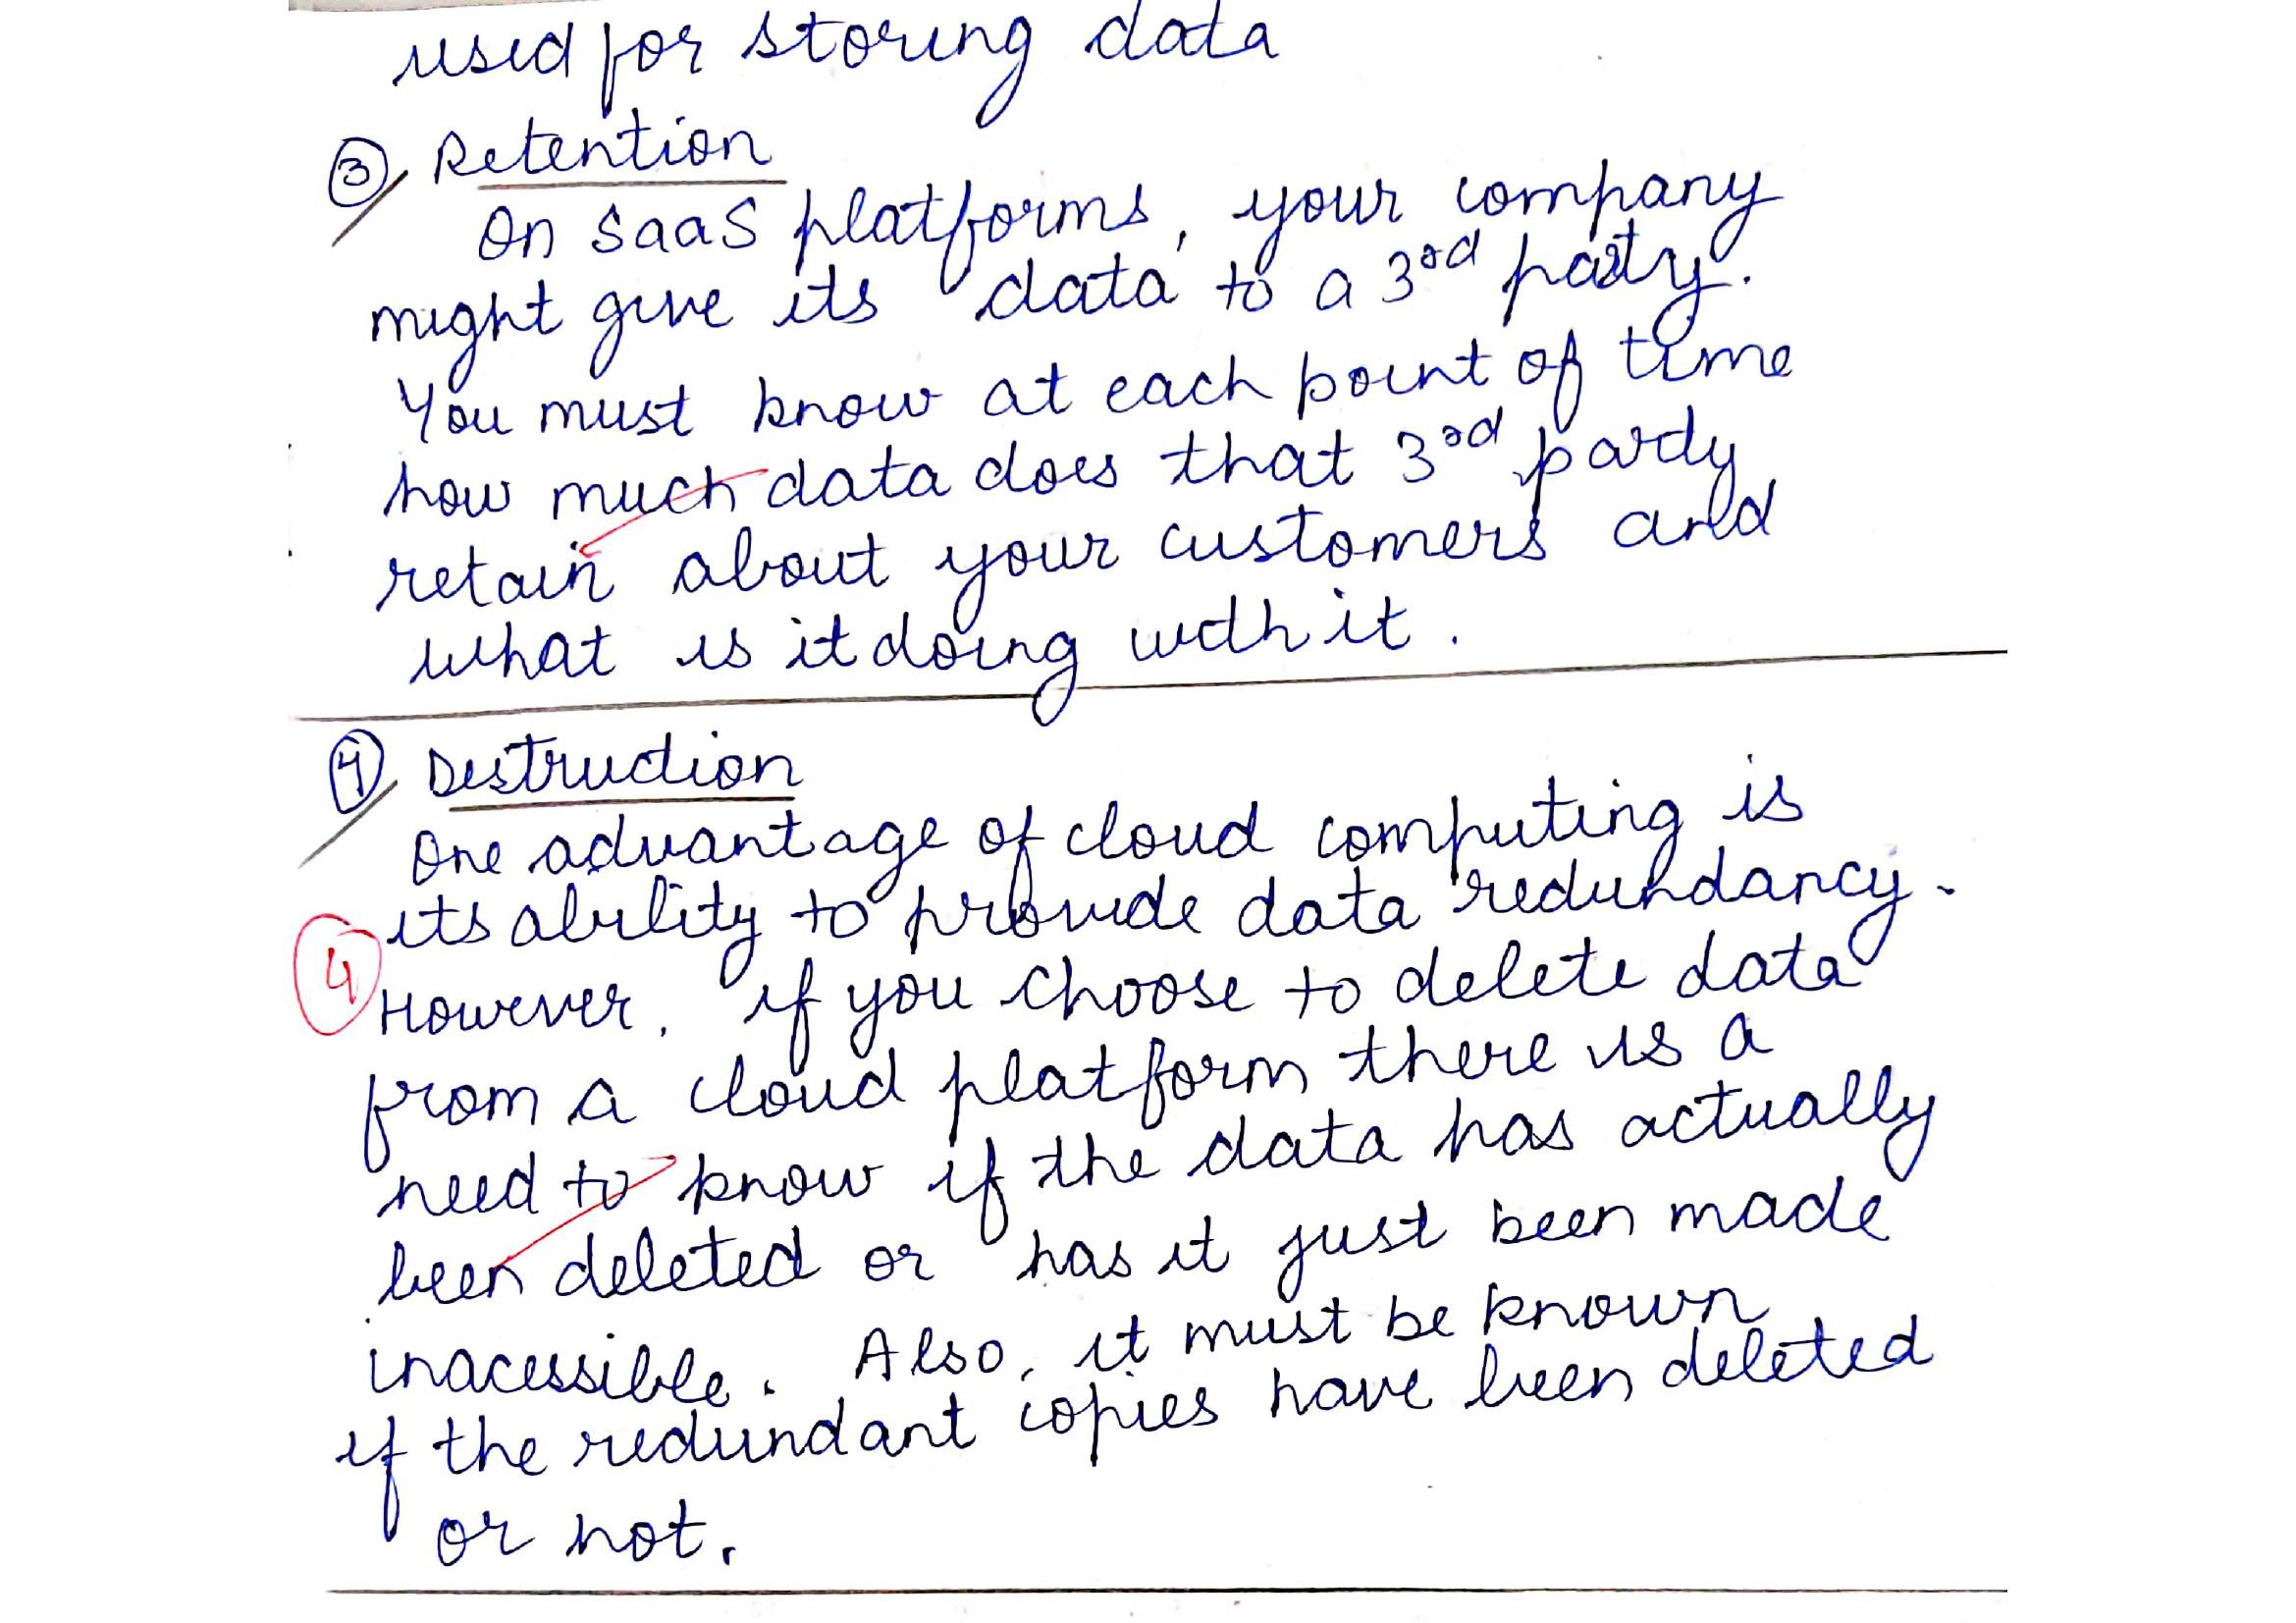 used for storing data
③ Retention
On SaaS platforms, your company
might give its data to a 3rd party.
You must know at each point of time
how much data does that 3rd party
retain about your customers and
what is it doing with it.
④ Destruction
One advantage of cloud computing is
its ability to provide data redundancy.
4
However, if you choose to delete data
from a cloud platform there is a
need to know if the data has actually
been deleted or has it just been made
inacessible. Also, it must be known
if the redundant copies have been deleted
or not.